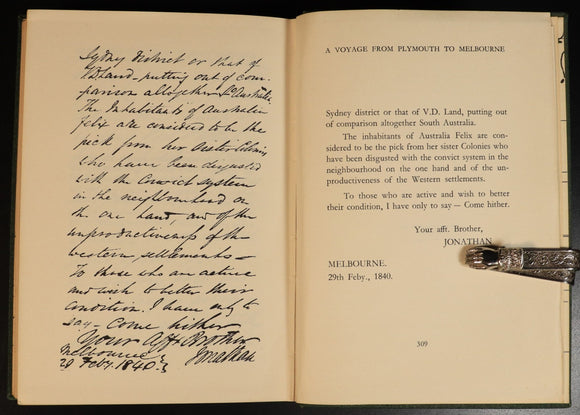 Sydney District or that of
V.D Land - putting out of com-
parison altogether So Australia.
The Inhabitants of Australia
felix are considered to be the
pick from her Sister Colonies
who have been disgusted
with the Convict system
in the neighbourhood on
the one hand, and of the
unproductiveness of the
western settlements -
To those who are active
and wish to better their
condition, I have only to
say - Come hither
Your Afft Brother
Melbourne Jonathan
29 Feby. 1840.
A VOYAGE FROM PLYMOUTH TO MELBOURNE
Sydney district or that of V.D. Land, putting out
of comparison altogether South Australia.
The inhabitants of Australia Felix are con-
sidered to be the pick from her sister Colonies who
have been disgusted with the convict system in the
neighbourhood on the one hand and of the un-
productiveness of the Western settlements.
To those who are active and wish to better
their condition, I have only to say — Come hither.
Your afft. Brother,
JONATHAN
MELBOURNE.
29th Feby., 1840.
309